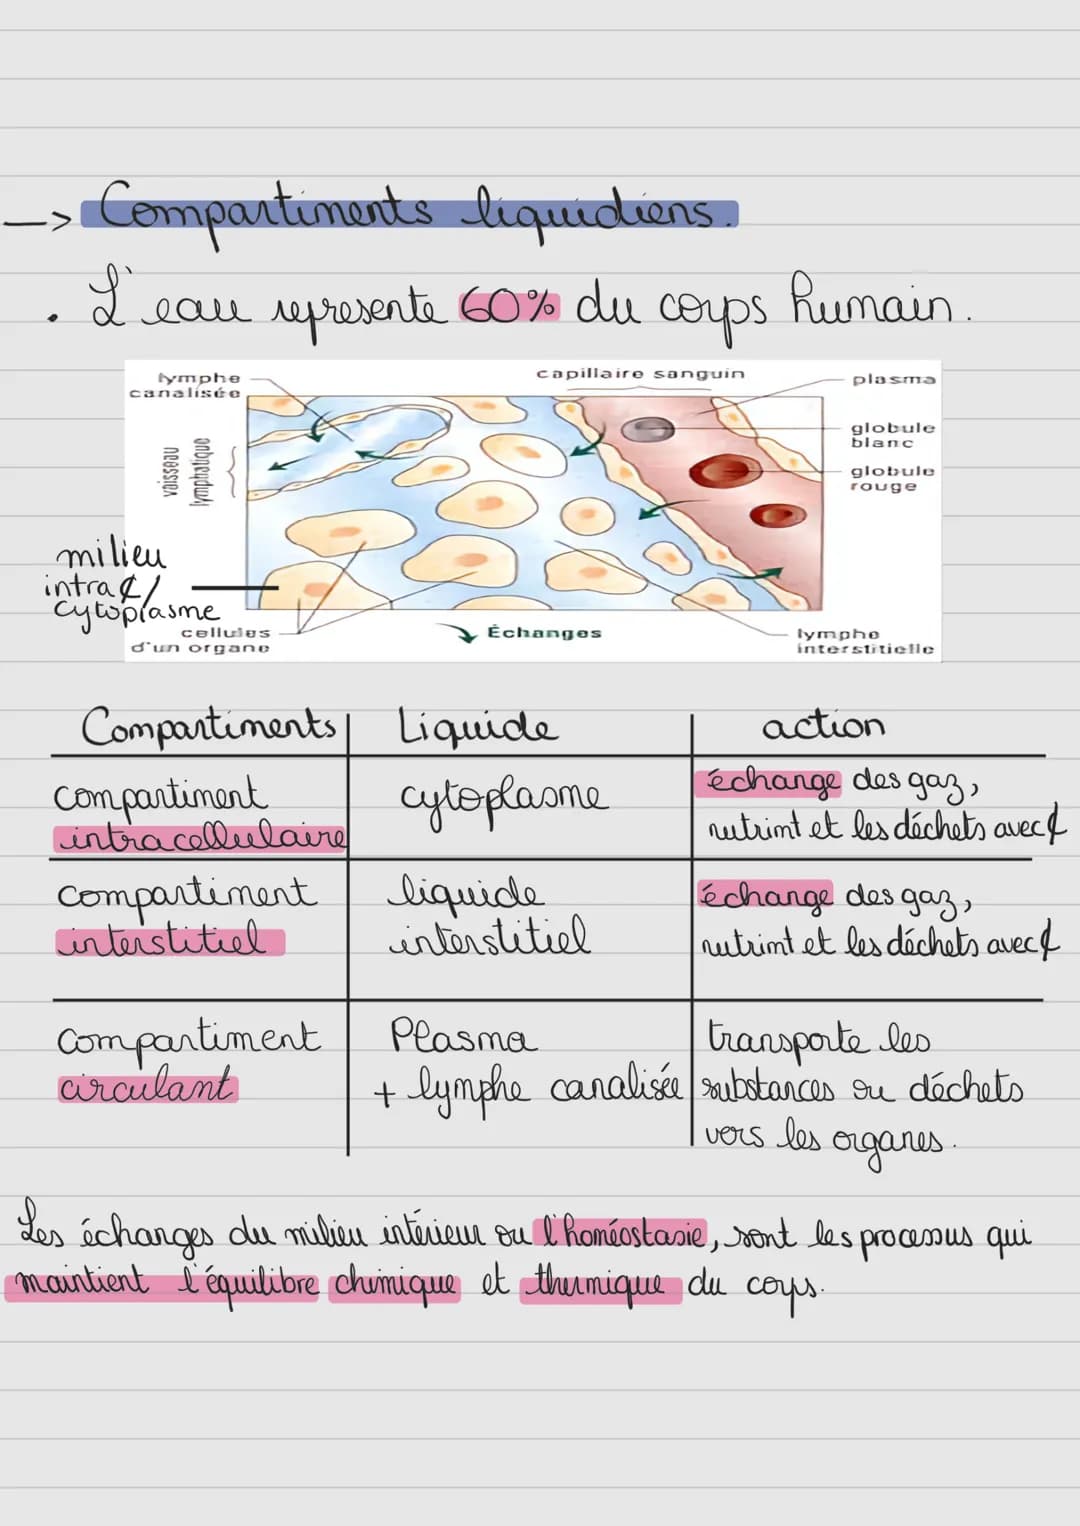 -> Compartiments liquidiens.
. L'eau represente 60% du corps humain.
lymphe
canalisée
capillaire sanguin
plasma
globule
blanc
globule
rouge
vaisseau
lymphatique
milieu
intra ¢/
cytoplasme
cellules
d'un organe
Échanges
lymphe
interstitielle
Compartiments Liquide action
compartiment
intracellulaire
cytoplasme
échange des gaz,
nutrimt et les déchets avec ¢
compartiment
interstitiel
liquide
interstitiel
échange des gaz,
nutrimt et les déchets avec ¢
compartiment
circulant
Plasma
+ lymphe canalisée
transporte les
substances ou déchets
vers les organes.
Les échanges du milieu intérieur ou l'homéostasie, sont les processus qui
maintient l'équilibre chimique et thermique du corps.